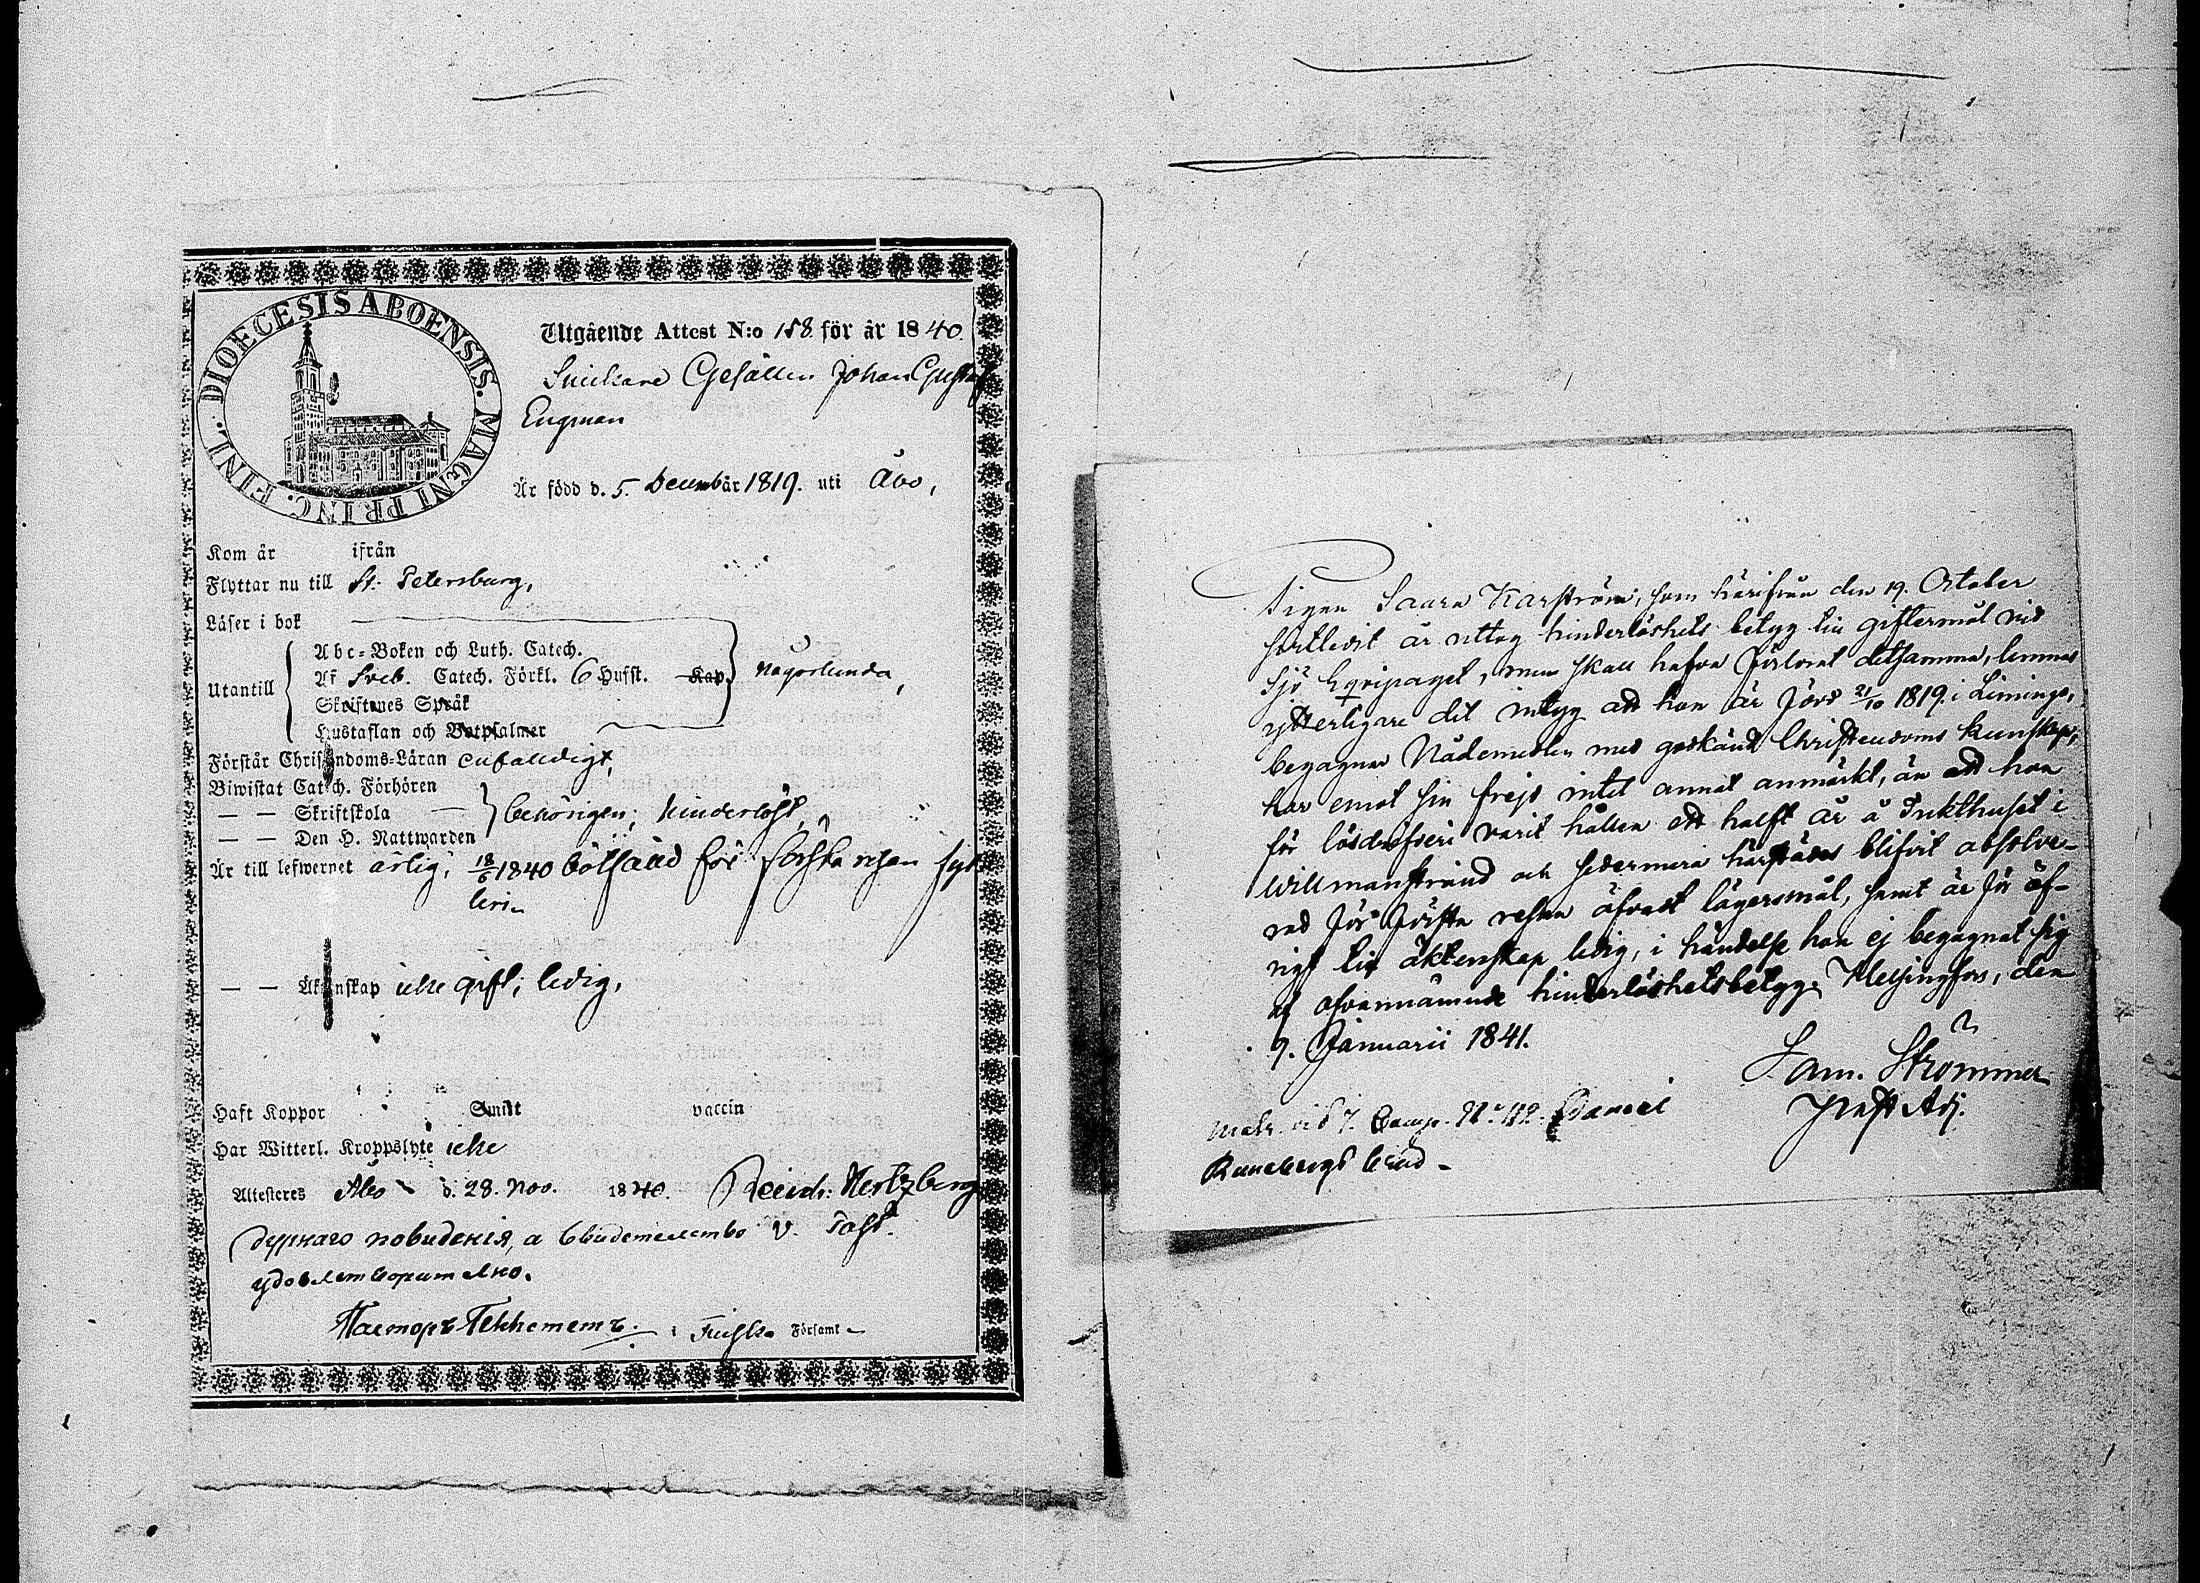 DIOECESIS ABOENSIS. MAGNI PRINC. FINL.
Utgående Attest N:o 158. för år 1840.
Snickare Gesällen Johan Gustaf
Engman
Är född d. 5. Decembär 1819. uti Åbo,
Kom år ifrån
Flyttar nu till St. Petersburg,
Läser i bok
Utantill
Abc-Boken och Luth. Catech.
Af Sveb. Catech. Förkl. 6 Hufst. Kap. någorlunda,
Skriftenes Språk
Hustaflan och Botpsalmer
Förstår Christendoms-Läran enfaldigt,
Biwistat Catech. Förhören
— — Skriftskola — behörigen; hinderlöst,
— — Den H. Nattwarden
Är till lefwernet ärlig, 18/6 1840 bötfäld för första resan fyl-
leri
— — Äktenskap icke gift; ledig,
Haft Koppor Smitt vaccin
Har Witterl. Kroppslyte icke
Attesteres Åbo d. 28. Nov. 1840. Hertzberg
дурнаго поведенія, а свидетелство v. Past.
удовлетворително.
Пасторъ
i Finska Församl
Pigan Saara Karström, som härifrån den 19. October
sistledit år uttog hinderlöshets betyg till giftermål vid
Sjö Eqvipaget, men skall hafva förlorat detsamma, lemnas
ytterligare det intyg att hon är född 21/10 1819 i Limingo,
begagnar Nådemedlen med godkänd Christendoms kunskap,
har emot sin frejd intet annat anmärkt, än att hon
för lösdrifveri varit hållen ett halft år å Tukthuset i
Willmanstrand och sedermera härstädes blifvit absolve-
rad för första resan öfvadt lägersmål, samt är för öf-
rigt till äktenskap ledig, i händelse hon ej begagnat sig
af ofvannämnde hinderlöshetsbetyg. Helsingfors, den
9. Januarii 1841.
Sam. Strömmer
Past Adj.
vid 7. Comp. N:o 112. Daniel
Runebergs